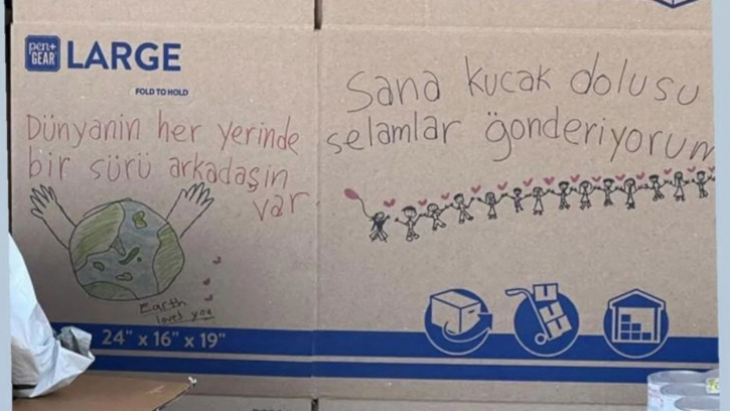 pen+
GEAR
LARGE
FOLD TO HOLD
Dünyanin her yerinde
bir sürü arkadaşin
var
Earth
loves you
24" x 16" x 19"
Sana kucak dolusu
selamlar gonderiyorum